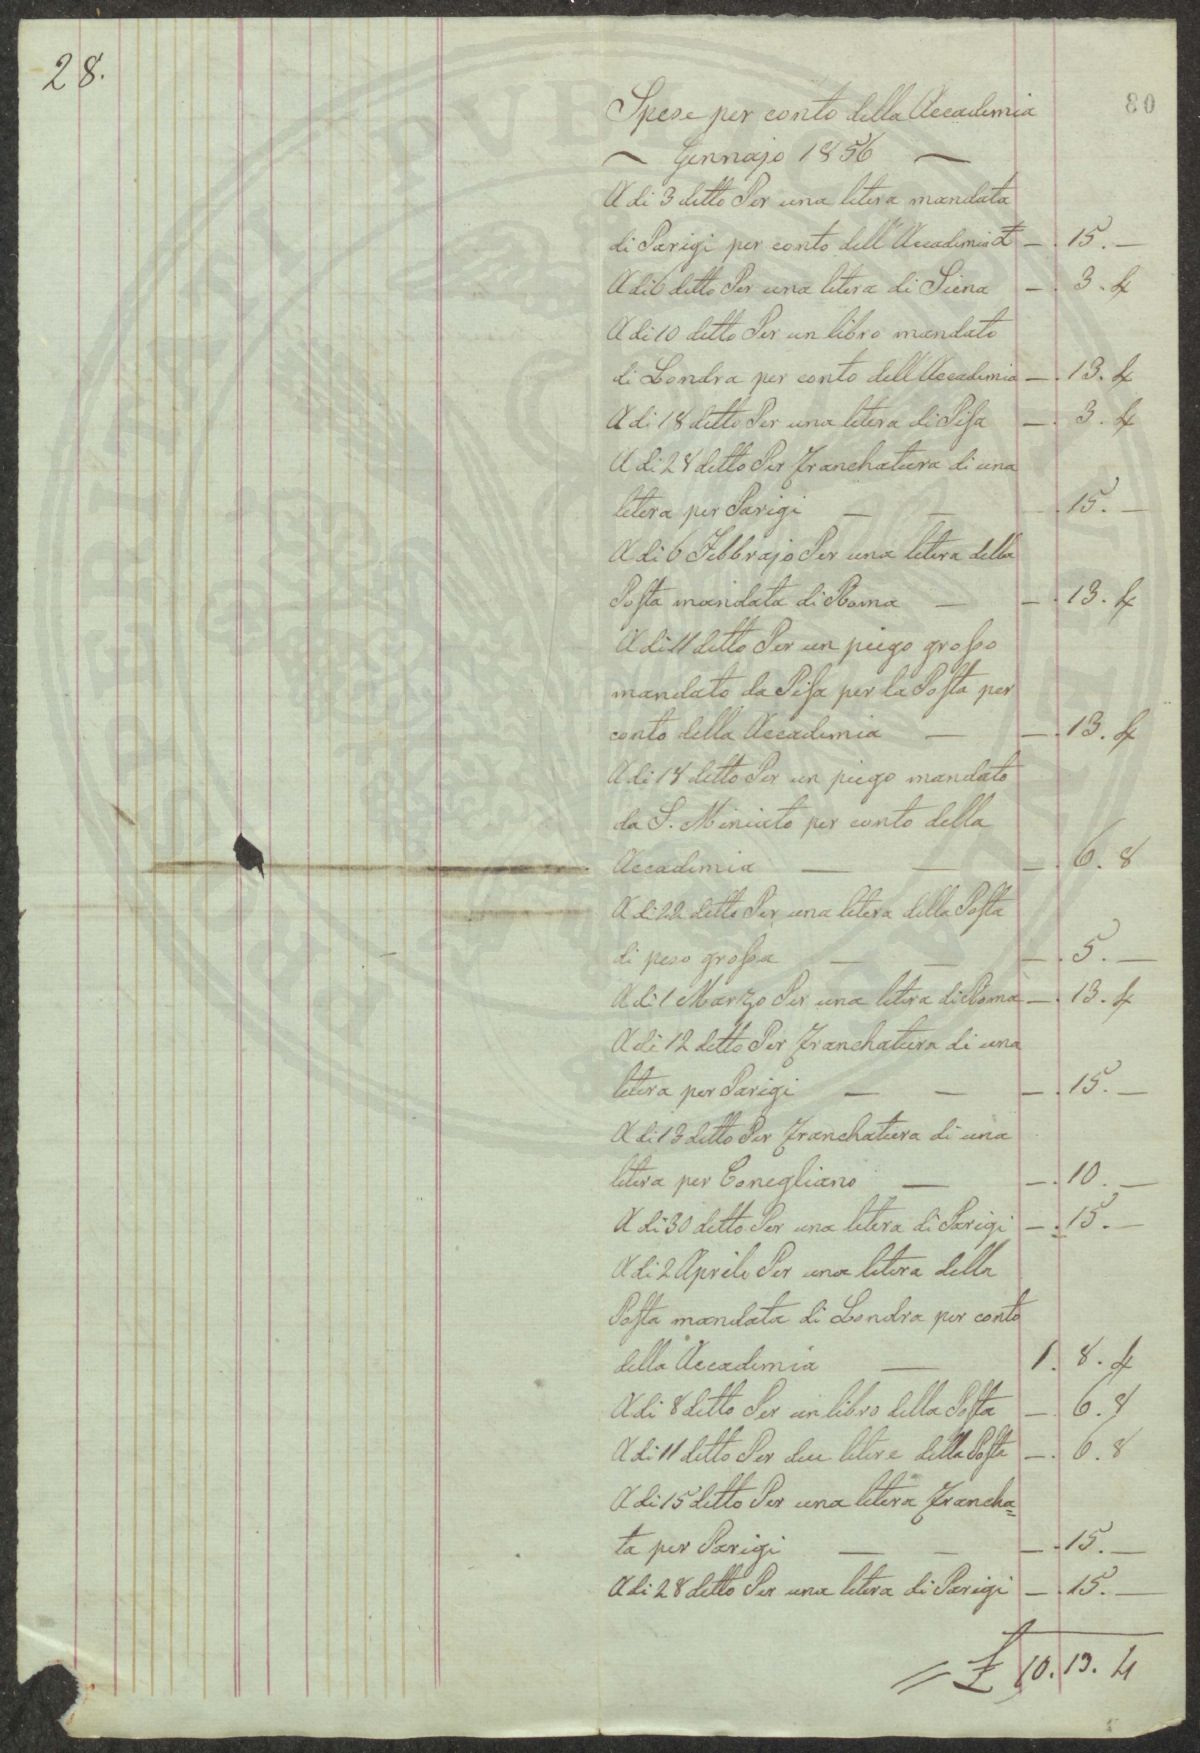 28.
80
Spese per conto della Accademia
~ Gennajo 1856 ~
A di 3 detto Per una letera mandata
di Parigi per conto dell'Accademia £ — . 15. —
A di 6 detto Per una letera di Siena — . 3. 4
A di 10 detto Per un libro mandato
di Londra per conto dell'Accademia — . 13. 4
A di 18 detto Per una letera di Pisa — . 3. 4
A di 28 detto Per Franchatura di una
letera per Parigi — — — . 15. —
A di 6 Febbrajo Per una letera della
Posta mandata di Roma — — . 13. 4
A di 11 detto Per un piego grosso
mandato da Pisa per la Posta per
conto della Accademia — — . 13. 4
A di 18 detto Per un piego mandato
da S. Miniato per conto della
Accademia — — — . 6. 8
A di 22 detto Per una letera della Posta
di peso grossa — — — . 5. —
A di 1 Marzo Per una letera di Roma — . 13. 4
A di 12 detto Per Franchatura di una
letera per Parigi — — — . 15. —
A di 13 detto Per Franchatura di una
letera per Conegliano — — . 10. —
A di 30 detto Per una letera di Parigi — . 15. —
A di 2 Aprile Per una letera della
Posta mandata di Londra per conto
della Accademia — 1. 8. 4
A di 8 detto Per un libro della Posta — . 6. 8
A di 11 detto Per due letere della Posta — . 6. 8
A di 15 detto Per una letera Francha=
ta per Parigi — — — . 15. —
A di 28 detto Per una letera di Parigi — . 15. —
// £ 10. 13. 4